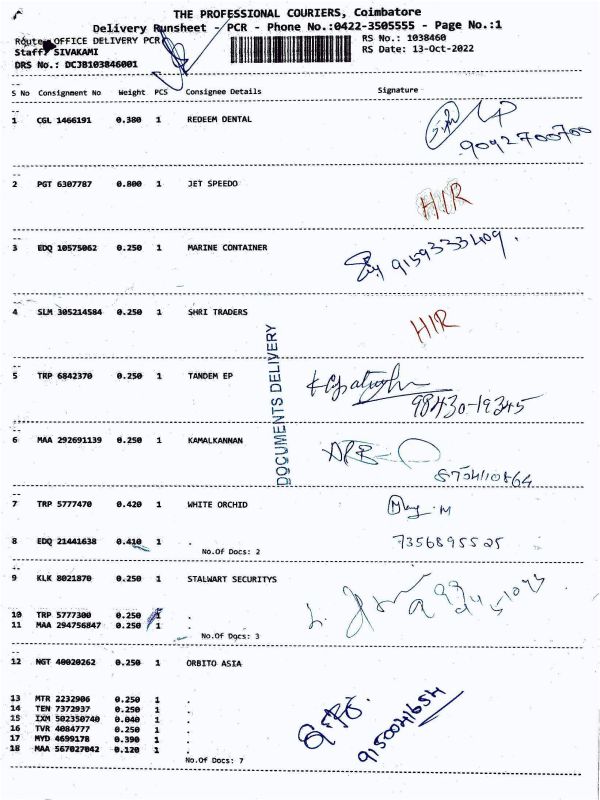 THE PROFESSIONAL COURIERS, Coimbatore
Delivery Runsheet - PCR - Phone No.:0422-3505555 - Page No.:1
Route: OFFICE DELIVERY PCR
RS No.: 1038460
Staff: SIVAKAMI
RS Date: 13-Oct-2022
DRS No.: DCJB103846001
S No Consignment No Weight PCS Consignee Details Signature
1 CGL 1466191 0.380 1 REDEEM DENTAL
9092700700
2 PGT 6307787 0.800 1 JET SPEEDO
HIR
3 EDQ 10575062 0.250 1 MARINE CONTAINER
9159333409
4 SLM 305214584 0.250 1 SHRI TRADERS
HIR
DOCUMENTS DELIVERY
5 TRP 6842370 0.250 1 TANDEM EP
98430-19345
6 MAA 292691139 0.250 1 KAMALKANNAN
8754110864
7 TRP 5777470 0.420 1 WHITE ORCHID
8 EDQ 21441638 0.410 1 .
7356895525
No.Of Docs: 2
9 KLK 8021870 0.250 1 STALWART SECURITYS
10 TRP 5777300 0.250 1 .
11 MAA 294756847 0.250 1 .
No.Of Docs: 3
12 NGT 40020262 0.250 1 ORBITO ASIA
13 MTR 2232906 0.250 1 .
14 TEN 7372937 0.250 1 .
15 IXM 502350740 0.040 1 .
16 TVR 4084777 0.250 1 .
17 MYD 4699178 0.390 1 .
18 MAA 567027042 0.120 1 .
9150041654
No.Of Docs: 7